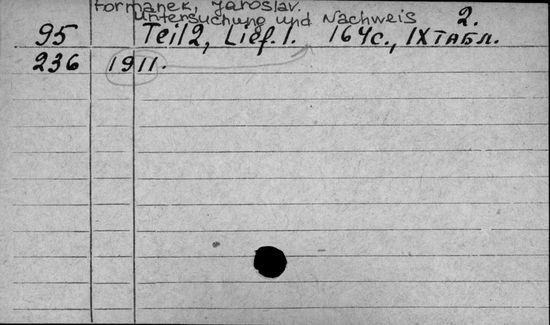 Formanek, Jaroslav.
Untersuchung und Nachweis 2.
95 Teil 2, Lief. 1. 164 с., IX табл.
236 1911.